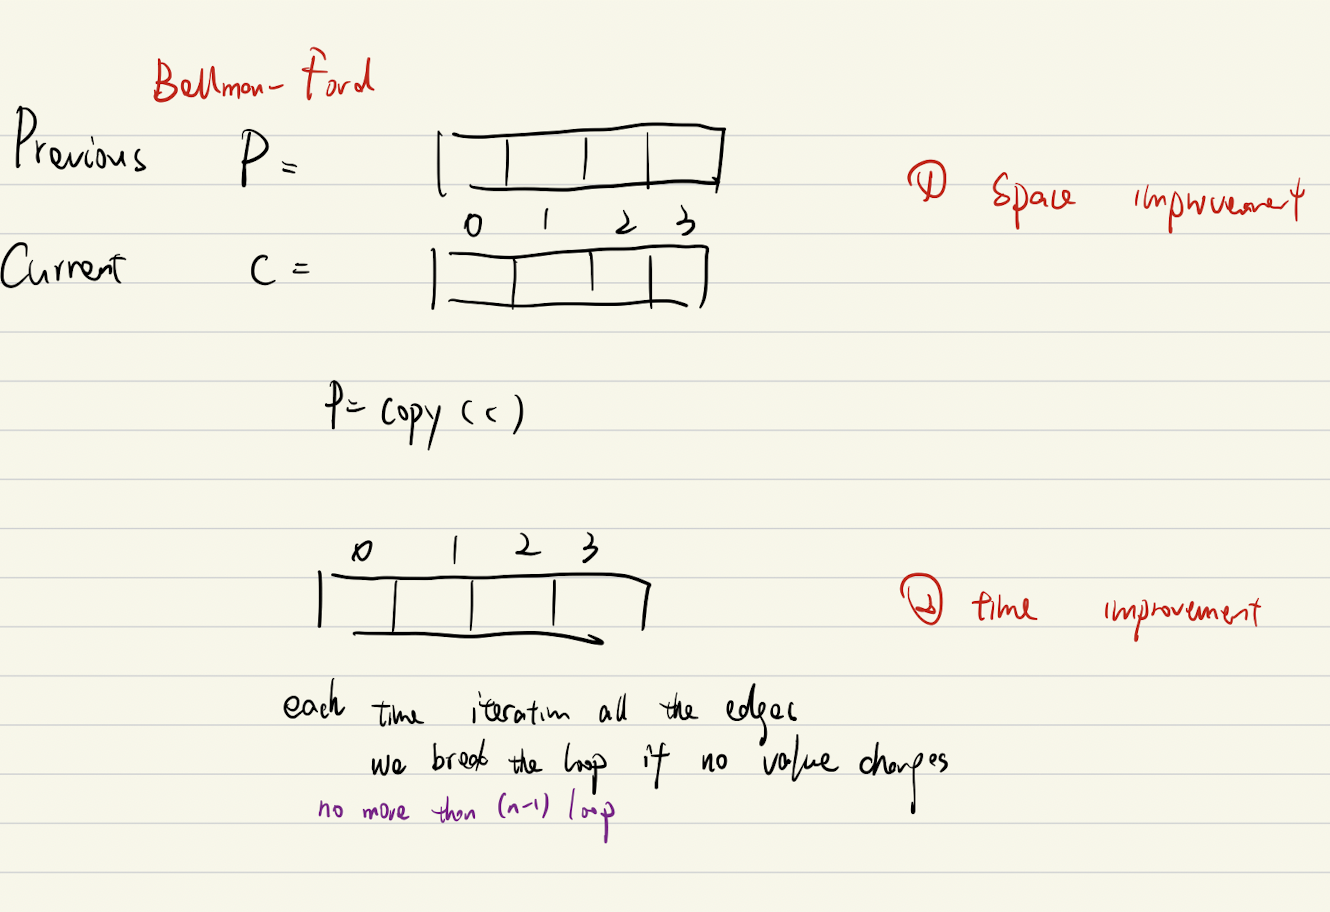 Bellman-Ford
Previous P =
① Space improvement
0 1 2 3
Current C =
P= copy (c)
0 1 2 3
② time improvement
each time iteration all the edges
we break the loop if no value changes
no more than (n-1) loop